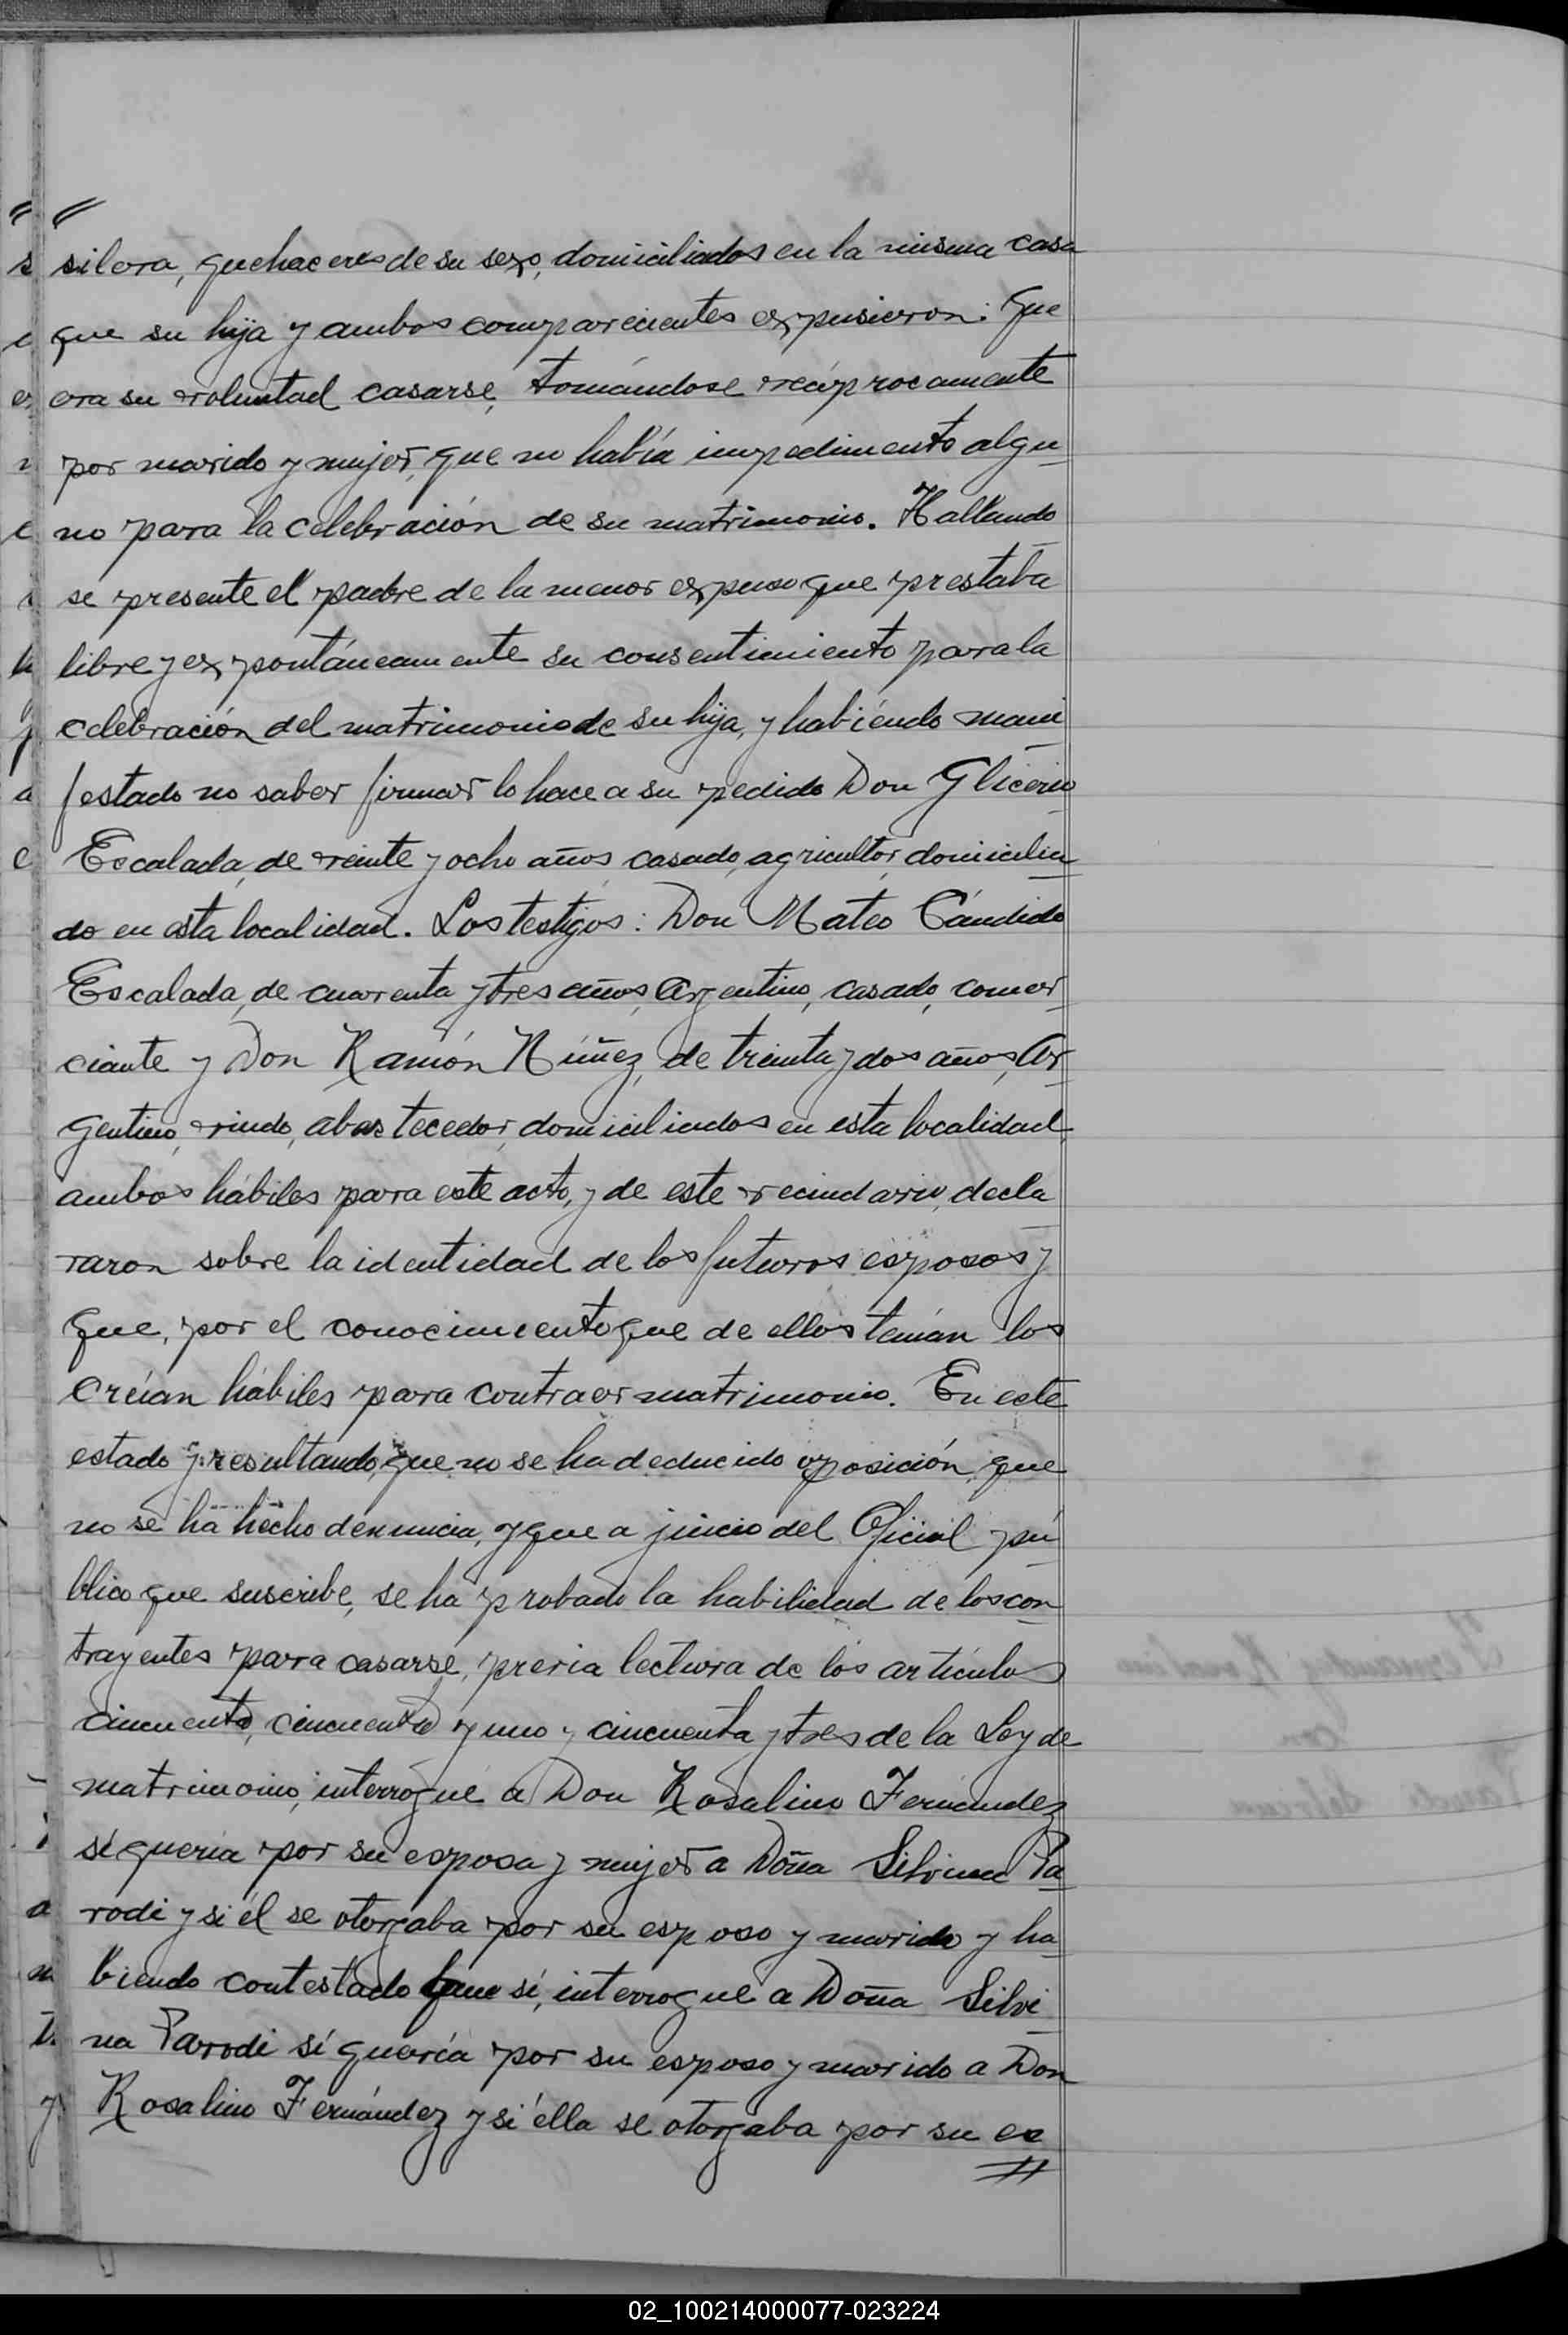 silera, quehaceres de su sexo, domiciliados en la misma casa
que su hija y ambos comparecientes expusieron: que
era su voluntad casarse, tomándose recíprocamente
por marido y mujer, que no había impedimento algu-
no para la celebración de su matrimonio. Hallando
se presente el padre de la menor expuso que prestaba
libre y expontáneamente su consentimiento para la
celebración del matrimonio de su hija, y habiéndo mani
festado no saber firmar lo hace a su pedido Don Glicerio
Escalada, de veinte y ocho años, casado, agricultor, domicilia
do en esta localidad. Los testigos: Don Mateo Cándido
Escalada, de cuarenta y tres años, Argentino, casado, comer
ciante y Don Ramón Núñez, de treinta y dos años, Ar
gentino, viudo, abastecedor, domiciliados en esta localidad,
ambos hábiles para este acto, y de este vecindario, decla
raron sobre la identidad de los futuros esposos y
que, por el conocimiento que de ellos tenían los
creían hábiles para contraer matrimonio. En este
estado y resultando, que no se ha deducido oposición, que
no se ha hecho denuncia, y que a juicio del Oficial pú
blico que suscribe, se ha probado la habilidad de los con
trayentes para casarse, previa lectura de los artículos
cincuenta, cincuenta y uno y cincuenta y tres de la Ley de
matrimonio, interrogué a Don Rosalino Fernández
sí quería por su esposa y mujer a Doña Silvina Pa
rodi y si él se otorgaba por su esposo y marido y ha
biendo contestado que sí, interrogué a Doña Silvi
na Parodi sí quería por su esposo y marido a Don
Rosalino Fernández y si ella se otorgaba por su es
02_100214000077-023224